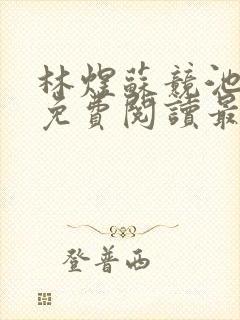 林煜蘇競池
免費閱讀最
登普西